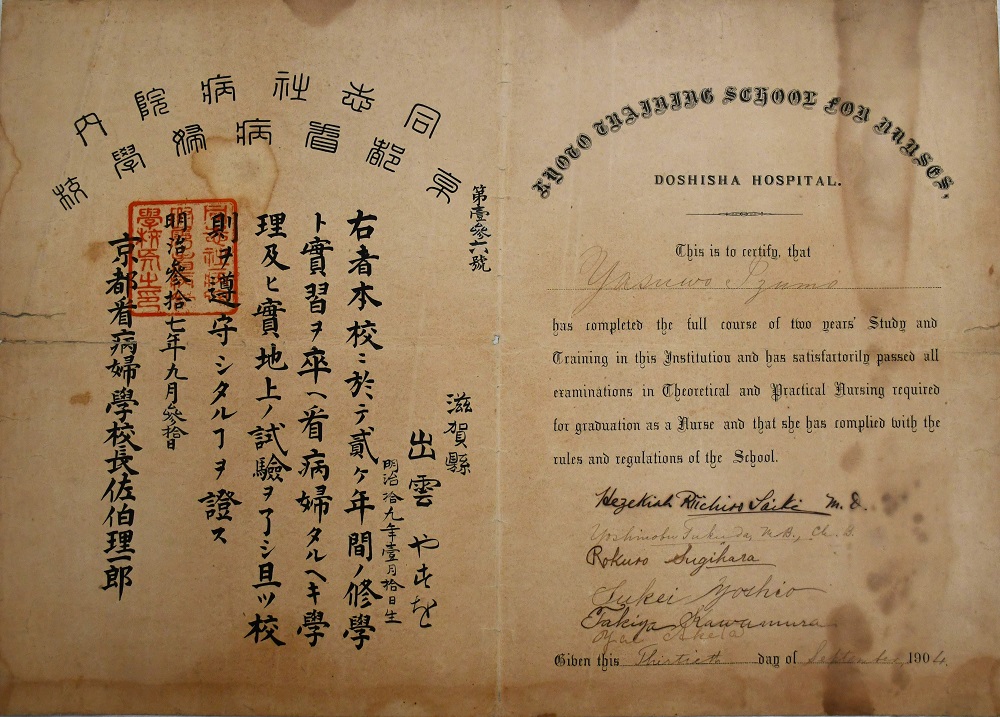 同志社病院内
京都看病婦學校
第壹參六號
滋賀縣
出雲やすを
明治拾九年壹月拾日生
右者本校ニ於テ貳ヶ年間ノ修學
ト實習ヲ卒ヘ看病婦タルヘキ學
理及ヒ實地上ノ試驗ヲ了シ且ツ校
則ヲ遵守シタルヿヲ證ス
明治參拾七年九月參拾日
京都看病婦學校長佐伯理一郎
KYOTO TRAINING SCHOOL FOR NURSES,
DOSHISHA HOSPITAL.
This is to certify, that
Yasuwo Izumo
has completed the full course of two years' Study and
Training in this Institution and has satisfartorily passed all
examinations in Theoretical and Practical Nursing required
for graduation as a Nurse and that she has complied with the
rules and regulations of the School.
Hezekiah Riichiro Saiki M.D.
Yoshinobu Fukuda, M.B., Ch.B.
Rokuro Sugihara
Fukei Yoshio
Takiya Kawamura
Given this Thirtieth day of September, 1904.